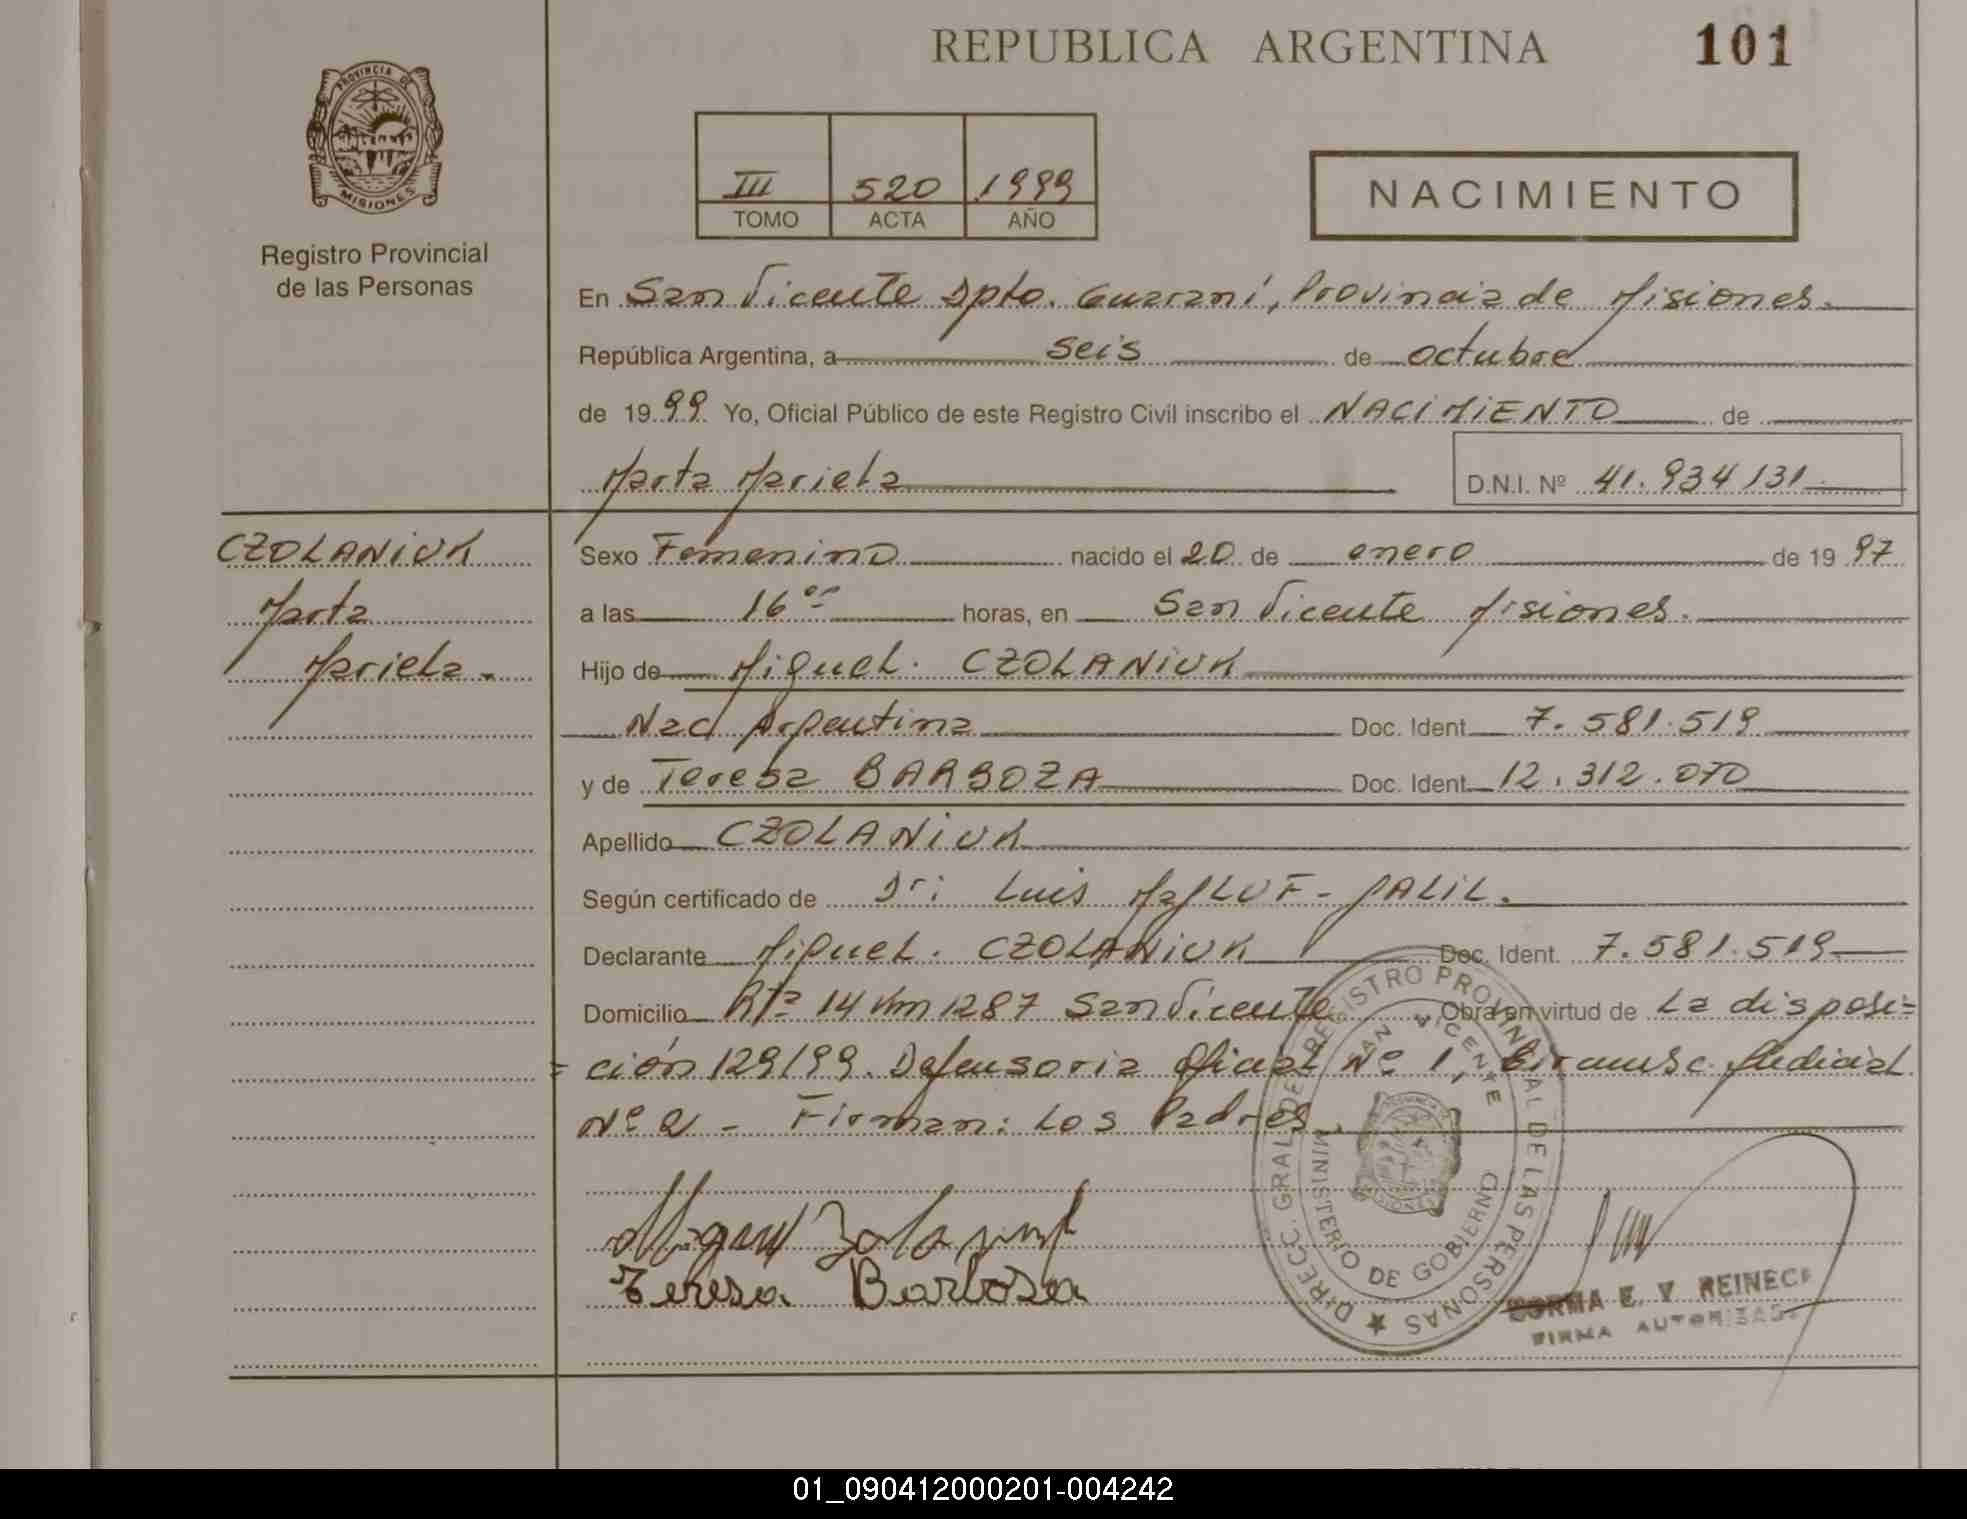 REPUBLICA ARGENTINA
101
PROVINCIA DE
MISIONES
Registro Provincial
de las Personas
III 520 1999
TOMO ACTA AÑO
NACIMIENTO
En San Vicente Dpto. Guaraní, Provincia de Misiones.
República Argentina, a seis de octubre
de 1999 Yo, Oficial Público de este Registro Civil inscribo el NACIMIENTO de
Marta Mariela
D.N.I. Nº 41.934131
CZOLANIUK
Marta
Mariela.
Sexo Femenino nacido el 20 de enero de 1997
a las 16 oo horas, en San Vicente Misiones.
Hijo de Miguel. CZOLANIUK
Nac Argentina Doc. Ident. 7.581.519
y de Teresa BARBOZA Doc. Ident. 12.312.070
Apellido CZOLANIUK
Según certificado de Dr: Luis MaJLUF-JALIL.
Declarante Miguel. CZOLANIUK Doc. Ident. 7.581.519
Domicilio Rta 14 Km 1287 San Vicente Obra en virtud de La disposi=
=ción 129/99. Defensoria Oficial Nº 1, Circunsc. Judicial
Nº 2 - Firman: Los Padres
Teresa Barbosa
DIRECC. GRAL. DEL REGISTRO PROVINCIAL DE LAS PERSONAS
SAN VICENTE
MINISTERIO DE GOBIERNO
E. V. REINECK
FIRMA AUTORIZADA
01_090412000201-004242